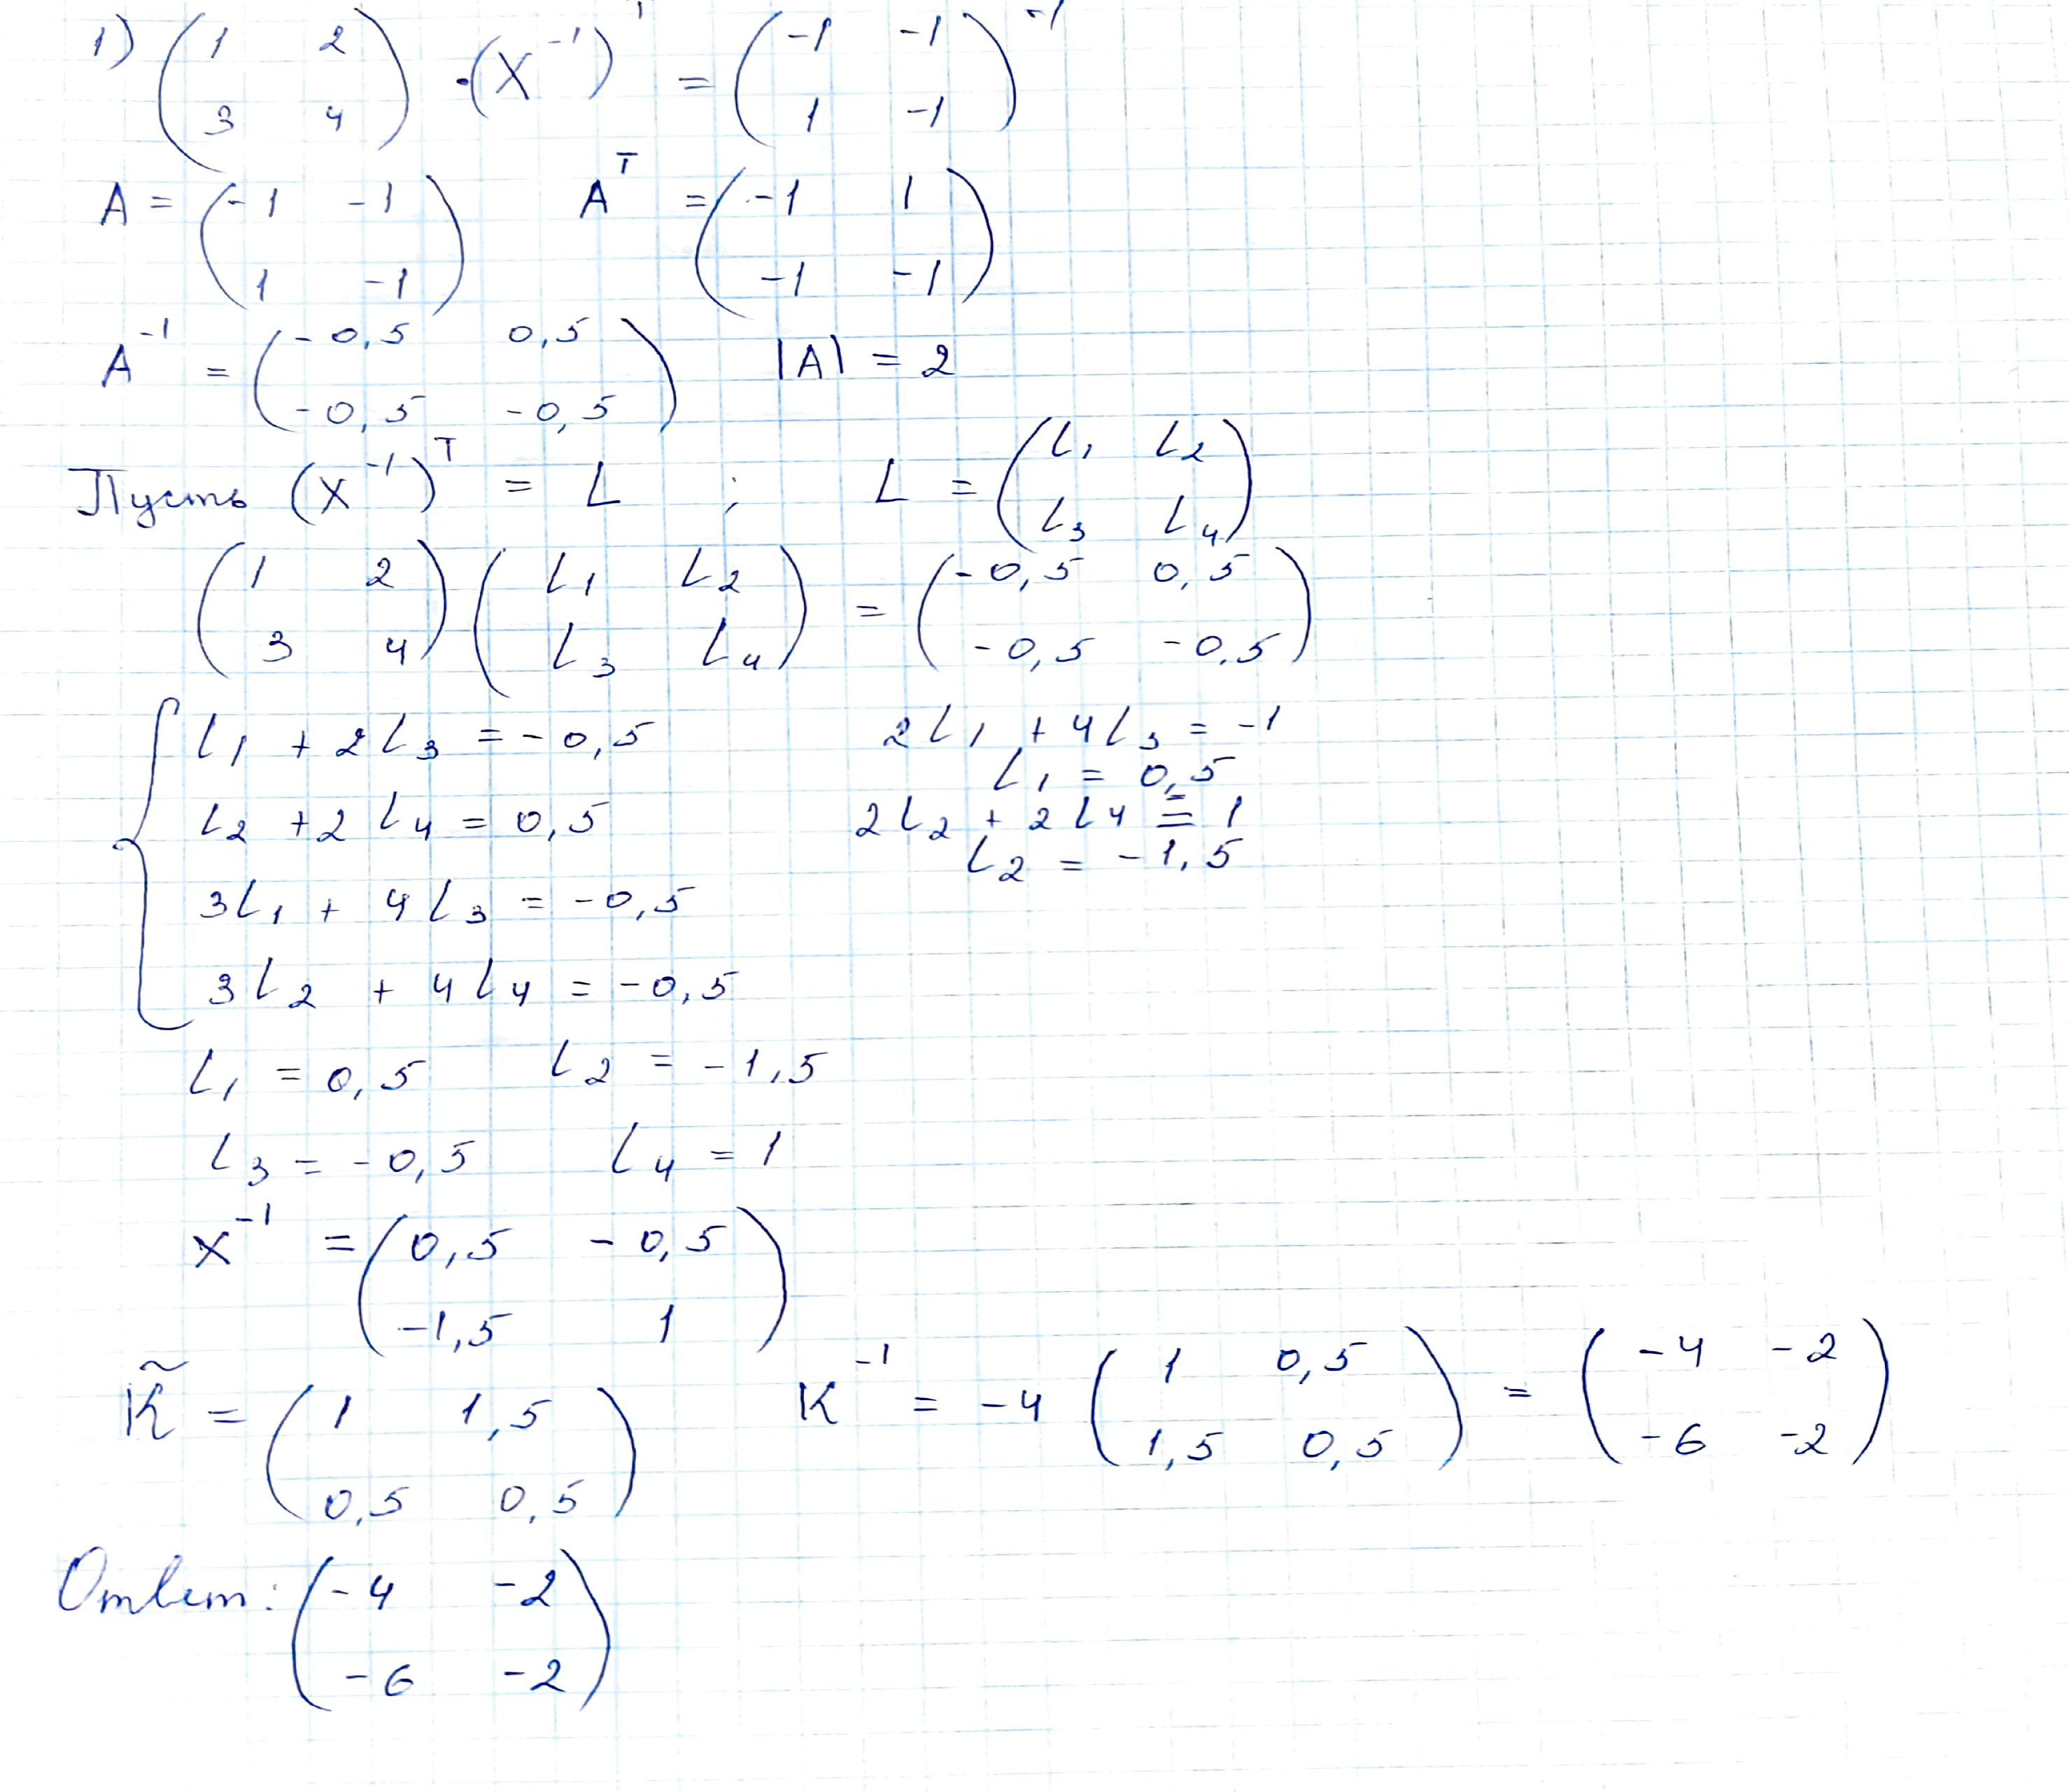 1) (1 2; 3 4) · (X⁻¹)ᵀ = (-1 -1; 1 -1)⁻¹
A = (-1 -1; 1 -1) Aᵀ = (-1 1; -1 -1)
A⁻¹ = (-0,5 0,5; -0,5 -0,5) |A| = 2
Пусть (X⁻¹)ᵀ = L ; L = (L₁ L₂; L₃ L₄)
(1 2; 3 4) (L₁ L₂; L₃ L₄) = (-0,5 0,5; -0,5 -0,5)
{ L₁ + 2L₃ = -0,5 2L₁ + 4L₃ = -1
L₁ = 0,5
L₂ + 2L₄ = 0,5 2L₂ + 2L₄ = 1
L₂ = -1,5
3L₁ + 4L₃ = -0,5
3L₂ + 4L₄ = -0,5
L₁ = 0,5 L₂ = -1,5
L₃ = -0,5 L₄ = 1
X⁻¹ = (0,5 -0,5; -1,5 1)
K̃ = (1 1,5; 0,5 0,5) K⁻¹ = -4 (1 0,5; 1,5 0,5) = (-4 -2; -6 -2)
Ответ: (-4 -2; -6 -2)